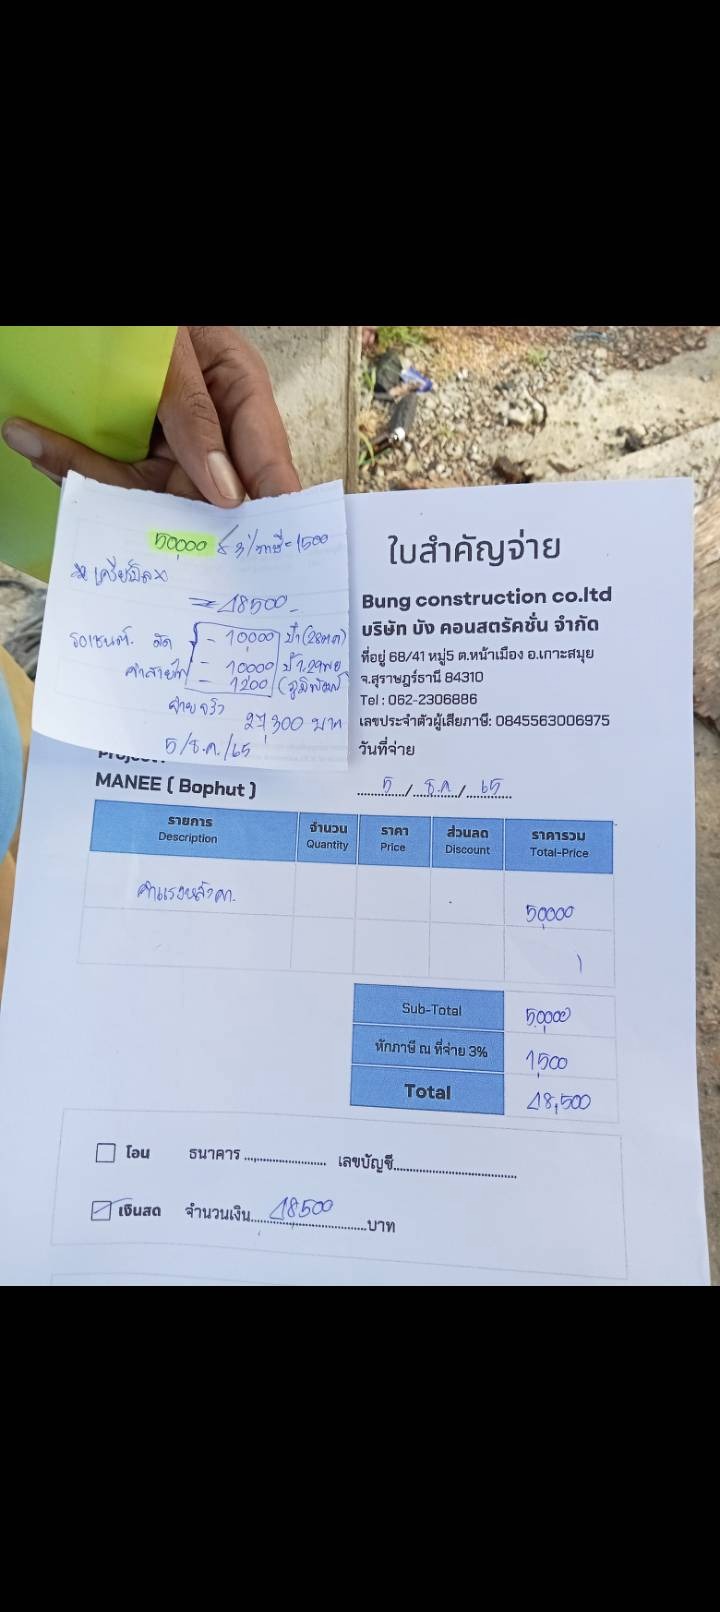 50,000 หัก 3% ภาษี = 1500
** เคลียร์บิล **
= 48500 -
รอเซ็นต์. หัก - 10,000 ป๋า (28 ตค)
ค่าสายไฟ - 10000 ป๋า. 29 พย
= 1200 (ภูมิพัฒน์)
จ่ายจริง 27,300 บาท
5/ธ.ค./65
ใบสำคัญจ่าย
Bung construction co.ltd
บริษัท บัง คอนสตรัคชั่น จำกัด
ที่อยู่ 68/41 หมู่5 ต.หน้าเมือง อ.เกาะสมุย
จ.สุราษฎร์ธานี 84310
Tel : 062-2306886
เลขประจำตัวผู้เสียภาษี: 0845563006975
วันที่จ่าย
5 / ธ.ค / 65
Project :
MANEE ( Bophut )
รายการ จำนวน ราคา ส่วนลด ราคารวม
Description Quantity Price Discount Total-Price
ค่าแรงหลังคา. 50,000
Sub-Total 50,000
หักภาษี ณ ที่จ่าย 3% 1,500
Total 48,500
โอน ธนาคาร .................... เลขบัญชี..............................
เงินสด จำนวนเงิน 48500 บาท